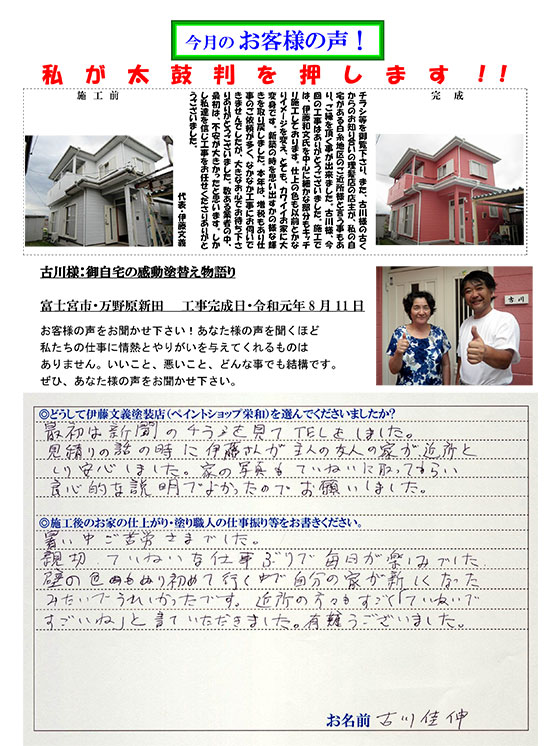 今月の お客様の声！
私が太鼓判を押します!!
施工前
完成
チラシ等を御覧下さり、また、古川様の古く
からのお知り合いの理髪店の店主が、私の自
宅がある白糸地区のご近所様と言う事もあ
り、ご縁を頂く事が出来ました。古川様、今
回の工事はありがとうございました。施工で
は、伊藤和文氏を中心に細かな部分もキッチ
リ施工してあります。仕上の色も以前とかな
りイメージを変え、とても、カワイイお家に大
変身です。新築の時を思い出すかの様な輝
きを取り戻しました。本年は、増税もあり仕
事のご依頼が多く、なかなか工事にお伺いで
きませんでしたが、大きなお心でお待ち下さ
りありがとうございました。数ある業者の中、
最初は、不安が大きかったと思います。しか
し私達を信じ工事をお任せくださりありがと
うございました。
代表・伊藤文義
古川様：御自宅の感動塗替え物語り
富士宮市・万野原新田 工事完成日・令和元年8月11日
お客様の声をお聞かせ下さい！あなた様の声を聞くほど
私たちの仕事に情熱とやりがいを与えてくれるものは
ありません。いいこと、悪いこと、どんな事でも結構です。
ぜひ、あなた様の声をお聞かせ下さい。
古川
◎どうして伊藤文義塗装店（ペイントショップ栄和）を選んでくださいましたか？
最初は新聞のチラシを見てTELをしました。
見積りの話の時に伊藤さんが主人の友人の家が近所と
しり安心しました。家の写真もていねいに取ってもらい
良心的な説明でよかったのでお願いしました。
◎施工後のお家の仕上がり・塗り職人の仕事振り等をお書きください。
暑い中ご苦労さまでした。
親切、ていねいな仕事ぶりで毎日が楽しみでした
壁の色をぬり初めて行く中で自分の家が新しくなった
みたいでうれしかったです。近所の方々もすごく「ていねいで
すごいね」と言ていただきました。有難うございました。
お名前 古川佳伸